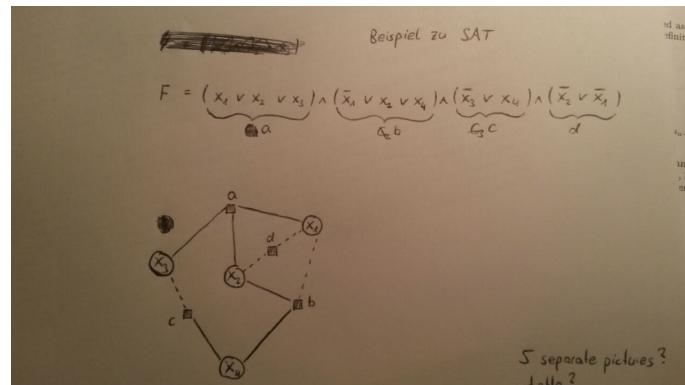 Beispiel zu SAT
F = (x₁ ∨ x₂ ∨ x₃) ∧ (x̄₁ ∨ x₂ ∨ x₄) ∧ (x̄₃ ∨ x₄) ∧ (x̄₂ ∨ x̄₁)
a b c d
a
x₁
d
x₃
x₂
b
c
x₄
5 separate pictures?